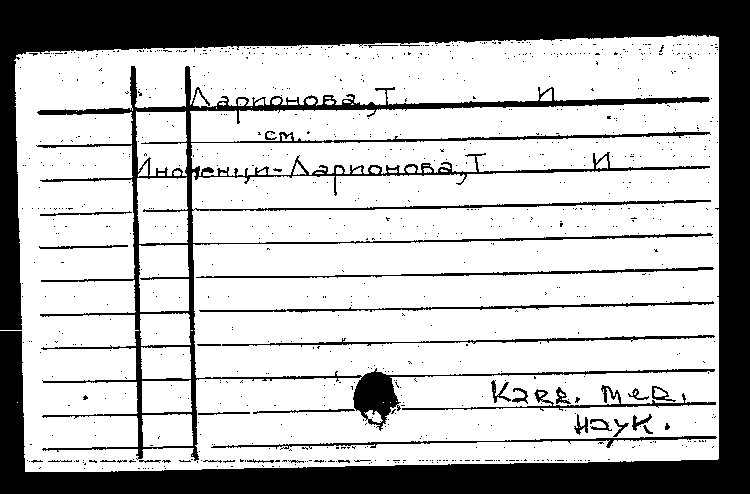 Ларионова, Т И
см.
Иноченци-Ларионова, Т И
Канд. мед.
наук.